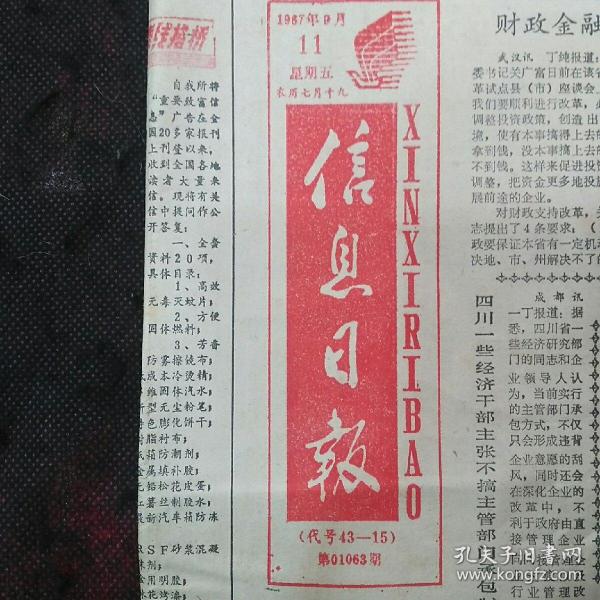 1987年9月
11
星期五
农历七月十九
信息日报
XINXIRIBAO
(代号43—15)
第01063期
搭桥
自我所将
“重要致富信
息”广告在全
国20多家报刊
上刊登以来，
收到全国各地
读者大量来
信。现将有关
信中提问作公
开答复：
一、全套
资料20项，
具体目录：
1、高效
无毒灭蚊片；
2、方便
固体燃料；
3、芳香
防雾擦镜布；
成本冷烫精；
维固体汽水；
型无尘粉笔；
色膨化饼干；
树脂衬布；
纸箱防潮剂；
金属填补胶；
无铅松花皮蛋；
红薯丝制胶水；
最新汽车箱防冻
RSF砂浆混凝
沫剂；
食用明胶；
财政金融
武汉讯 丁纯报道：
委书记关广富日前在该省
革试点县（市）座谈会上
我们要顺利进行改革，必
调整投资政策，创造出
境，使有本事搞得上去的
拿到钱，没本事搞上去的
不到钱。这样来促进投资
调整，把资金更多地投放
展前途的企业。
对财政支持改革，关
志提出了4条要求：（
政要保证本省有一定机动
决地、市、州解决不了的
四川一些经济干部主张不搞主管部门承包
成都讯
一丁报道：据
悉，四川省一
些经济研究部
门的同志和企
业领导人认
为，当前实行
的主管部门承
包方式，不仅
只会形成违背
企业意愿的刮
风，同时还会
在深化企业的
改革中，不
利于政府由直
接管理企业
向间接管理企
行业管理改
孔夫子旧书网
www.kongfz.com